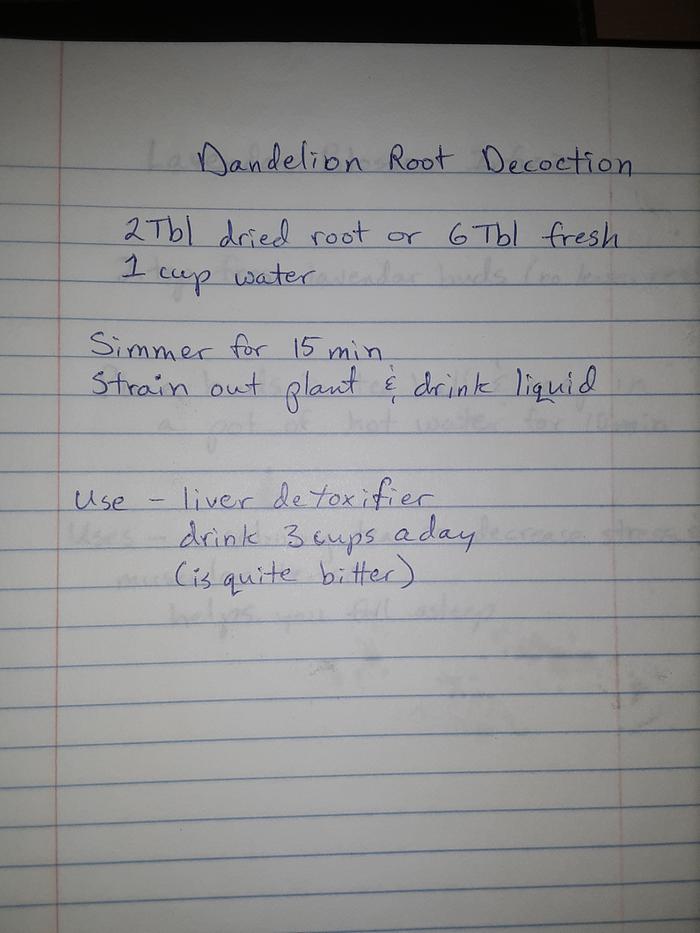 Dandelion Root Decoction
2 Tbl dried root or 6 Tbl fresh
1 cup water
Simmer for 15 min
Strain out plant & drink liquid
Use - liver detoxifier
drink 3 cups a day
(is quite bitter)